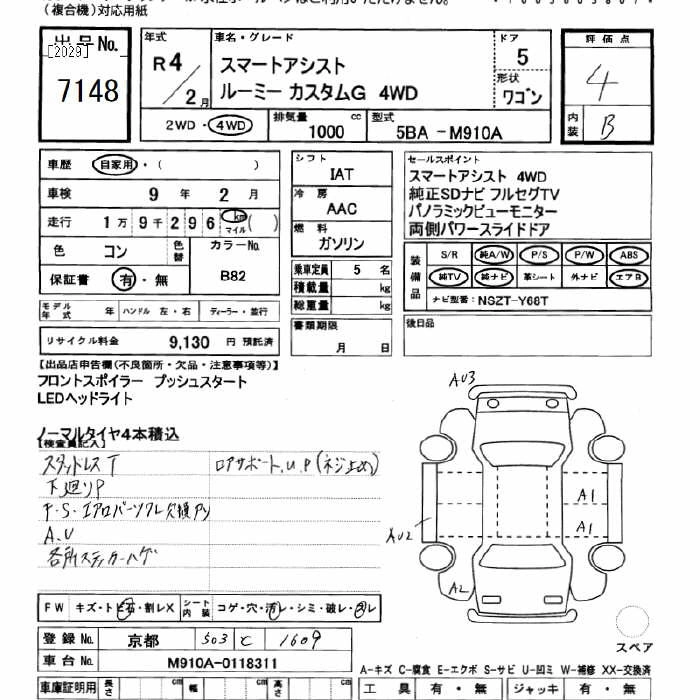 (複合機)対応用紙
出品No. [2029] 7148
年式 R4/2月
車名・グレード スマートアシスト
ルーミー カスタムG 4WD
ドア 5
形状 ワゴン
評価点 4
内装 B
2WD・4WD
排気量 1000 cc
型式 5BA-M910A
車歴 自家用・( )
車検 9年 2月
走行 1万9千296 km マイル ( )
色 コン 色替
カラーNo. B82
保証書 有・無
モデル年式 年 ハンドル 左・右 ディーラー・並行
リサイクル料金 9,130 円 預託済
シフト IAT
冷房 AAC
燃料 ガソリン
乗車定員 5 名
積載量 kg
総重量 kg
書類期限 月 日
セールスポイント
スマートアシスト 4WD
純正SDナビ フルセグTV
パノラミックビューモニター
両側パワースライドドア
装備品 S/R 純A/W P/S P/W ABS
純TV 純ナビ 革シート 外ナビ エアB
ナビ型番: NSZT-Y68T
後日品
【出品店申告欄(不良箇所・欠品・注意事項等)】
フロントスポイラー プッシュスタート
LEDヘッドライト
ノーマルタイヤ4本積込
【検査員記入】
スタットレスT
ロアサポート,U,P(ネジ止め)
下廻りP
A.U
各所ステッカーハゲ
AU3
A1
A1
AU2
A2
FW キズ・トビ石・割レX シート内装 コゲ・穴・汚レ・シミ・破レ
スペア
登録No. 京都 503 c 1609
車台No. M910A-0118311
A-キズ C-腐食 E-エクボ S-サビ U-凹ミ W-補修 XX-交換済
車庫証明用 長さ cm 幅 cm 高さ cm
工具 有・無 ジャッキ 有・無